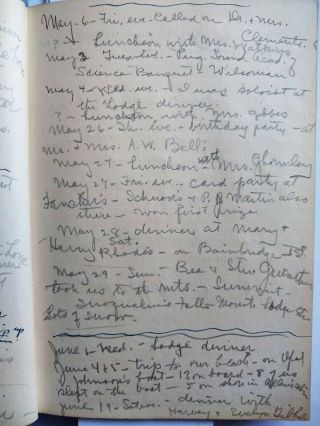 May - 6 - Fri. eve - Called on Dr. & Mrs.
Clements.
? - Luncheon with Mrs. Watkins
May 3 Tues. eve. - Pug. Sound Acad. of
Science Banquet - Wilsonian
May 4 - Wed. eve. - I was soloist at
the Lodge dinner.
? - Luncheon with Mrs. Gibbs
May 26 - Th. eve. - birthday party - at
Mr. & Mrs. A.W. Bell's
May 27 - Luncheon with Mrs. Ghormley
May 27 - Fri. eve. - card party at
- & P. J. Martin also
there - won first prize
May 28 - Sat. - dinner at Mary &
Harry Rhodes - on Bainbridge Is.
May 29 - Sun. - Bea & Stu
took us to the Mts. - Summit -
Snoqualmie Falls - Lodge etc.
Lots of snow.
June 1 - Wed. - Lodge dinner
June 4 & 5 - trip to our beach - on
Johnson's boat - 13 on board - 8 of us
slept on the boat - 5 on shore in
June 19 - dinner with
Harvey & Evelyn Gibbs